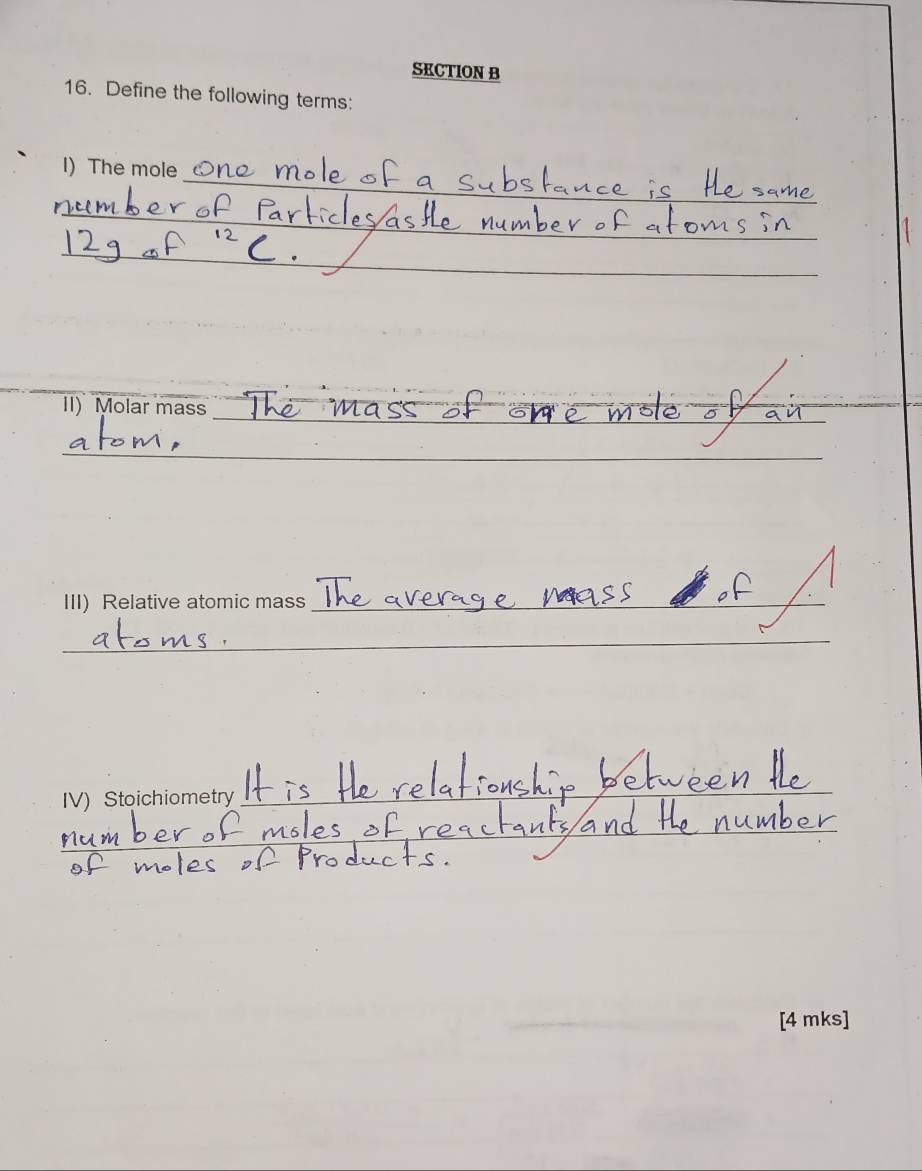 SECTION B
16. Define the following terms:
I) The mole one mole of a substance is the same
number of Particles as the number of atoms in
12g of ¹²C.
II) Molar mass The mass of one mole of an
atom.
III) Relative atomic mass The average mass of
atoms.
IV) Stoichiometry It is the relationship between the
number of moles of reactants and the number
of moles of Products.
[4 mks]